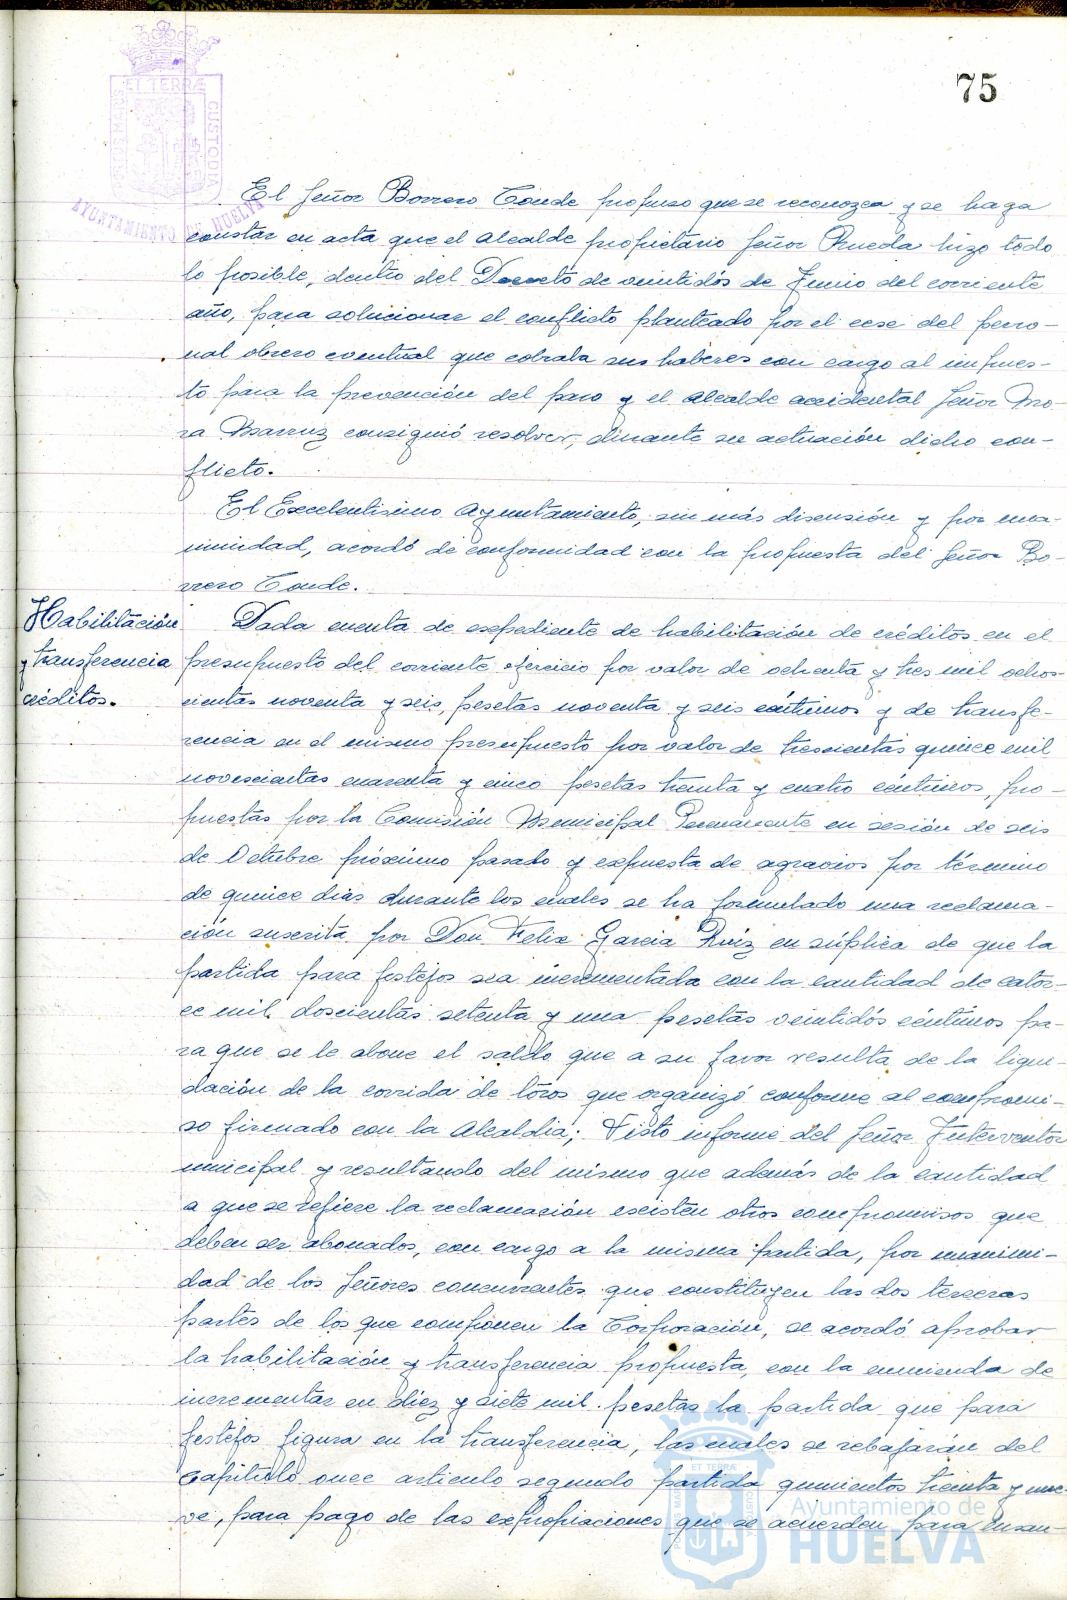 75
ET TERRÆ
CUSTODIA
AYUNTAMIENTO DE HUELVA
El Señor Borrero Conde propuso que se reconozca y se haga
constar en acta que el Alcalde propietario Señor Rueda hizo todo
lo posible, dentro del Decreto de veintidós de Junio del corriente
año, para solucionar el conflicto planteado por el cese del perso-
nal obrero eventual que cobraba sus haberes con cargo al impues-
to para la prevención del paro y el Alcalde accidental Señor Mo-
ra consiguió resolver, durante su actuación dicho con-
flicto.
El Excelentísimo Ayuntamiento, sin más discusión y por una-
nimidad, acordó de conformidad con la propuesta del Señor Bo-
rrero Conde.
Habilitación
y transferencia
créditos.
Dada cuenta de expediente de habilitación de créditos en el
presupuesto del corriente ejercicio por valor de ochenta y tres mil ochos-
cientas noventa y seis, pesetas noventa y seis céntimos y de transfe-
rencia en el mismo presupuesto por valor de trescientas quince mil
novescientas cuarenta y cinco pesetas treinta y cuatro céntimos, pro-
puestas por la Comisión Municipal Permanente en sesión de seis
de Octubre próximo pasado y expuesta de agravios por término
de quince días durante los cuales se ha formulado una reclama-
ción suscrita por Don Felix Garcia Ruíz en súplica de que la
partida para festejos sea incrementada con la cantidad de cator-
ce mil doscientas setenta y una pesetas veintidós céntimos pa-
ra que se le abone el saldo que a su favor resulta de la liqui-
dación de la corrida de toros que organizó conforme al compromi-
so firmado con la Alcaldia; Visto informe del Señor Interventor
municipal y resultando del mismo que además de la cantidad
a que se refiere la reclamación escisten otros compromisos que
deben ser abonados, con cargo a la misma partida, por unanimi-
dad de los Señores concurrentes que constituyen las dos terceras
partes de los que componen la Corporación, se acordó aprobar
la habilitación y transferencia propuesta, con la enmienda de
incrementar en diez y siete mil pesetas la partida que para
festejos figura en la transferencia, las cuales se rebajarán del
Capitulo once articulo segundo partida quinientos treinta y nue-
ve, para pago de las expropiaciones que se acuerden para ensan-
ET TERRÆ
Ayuntamiento de
HUELVA